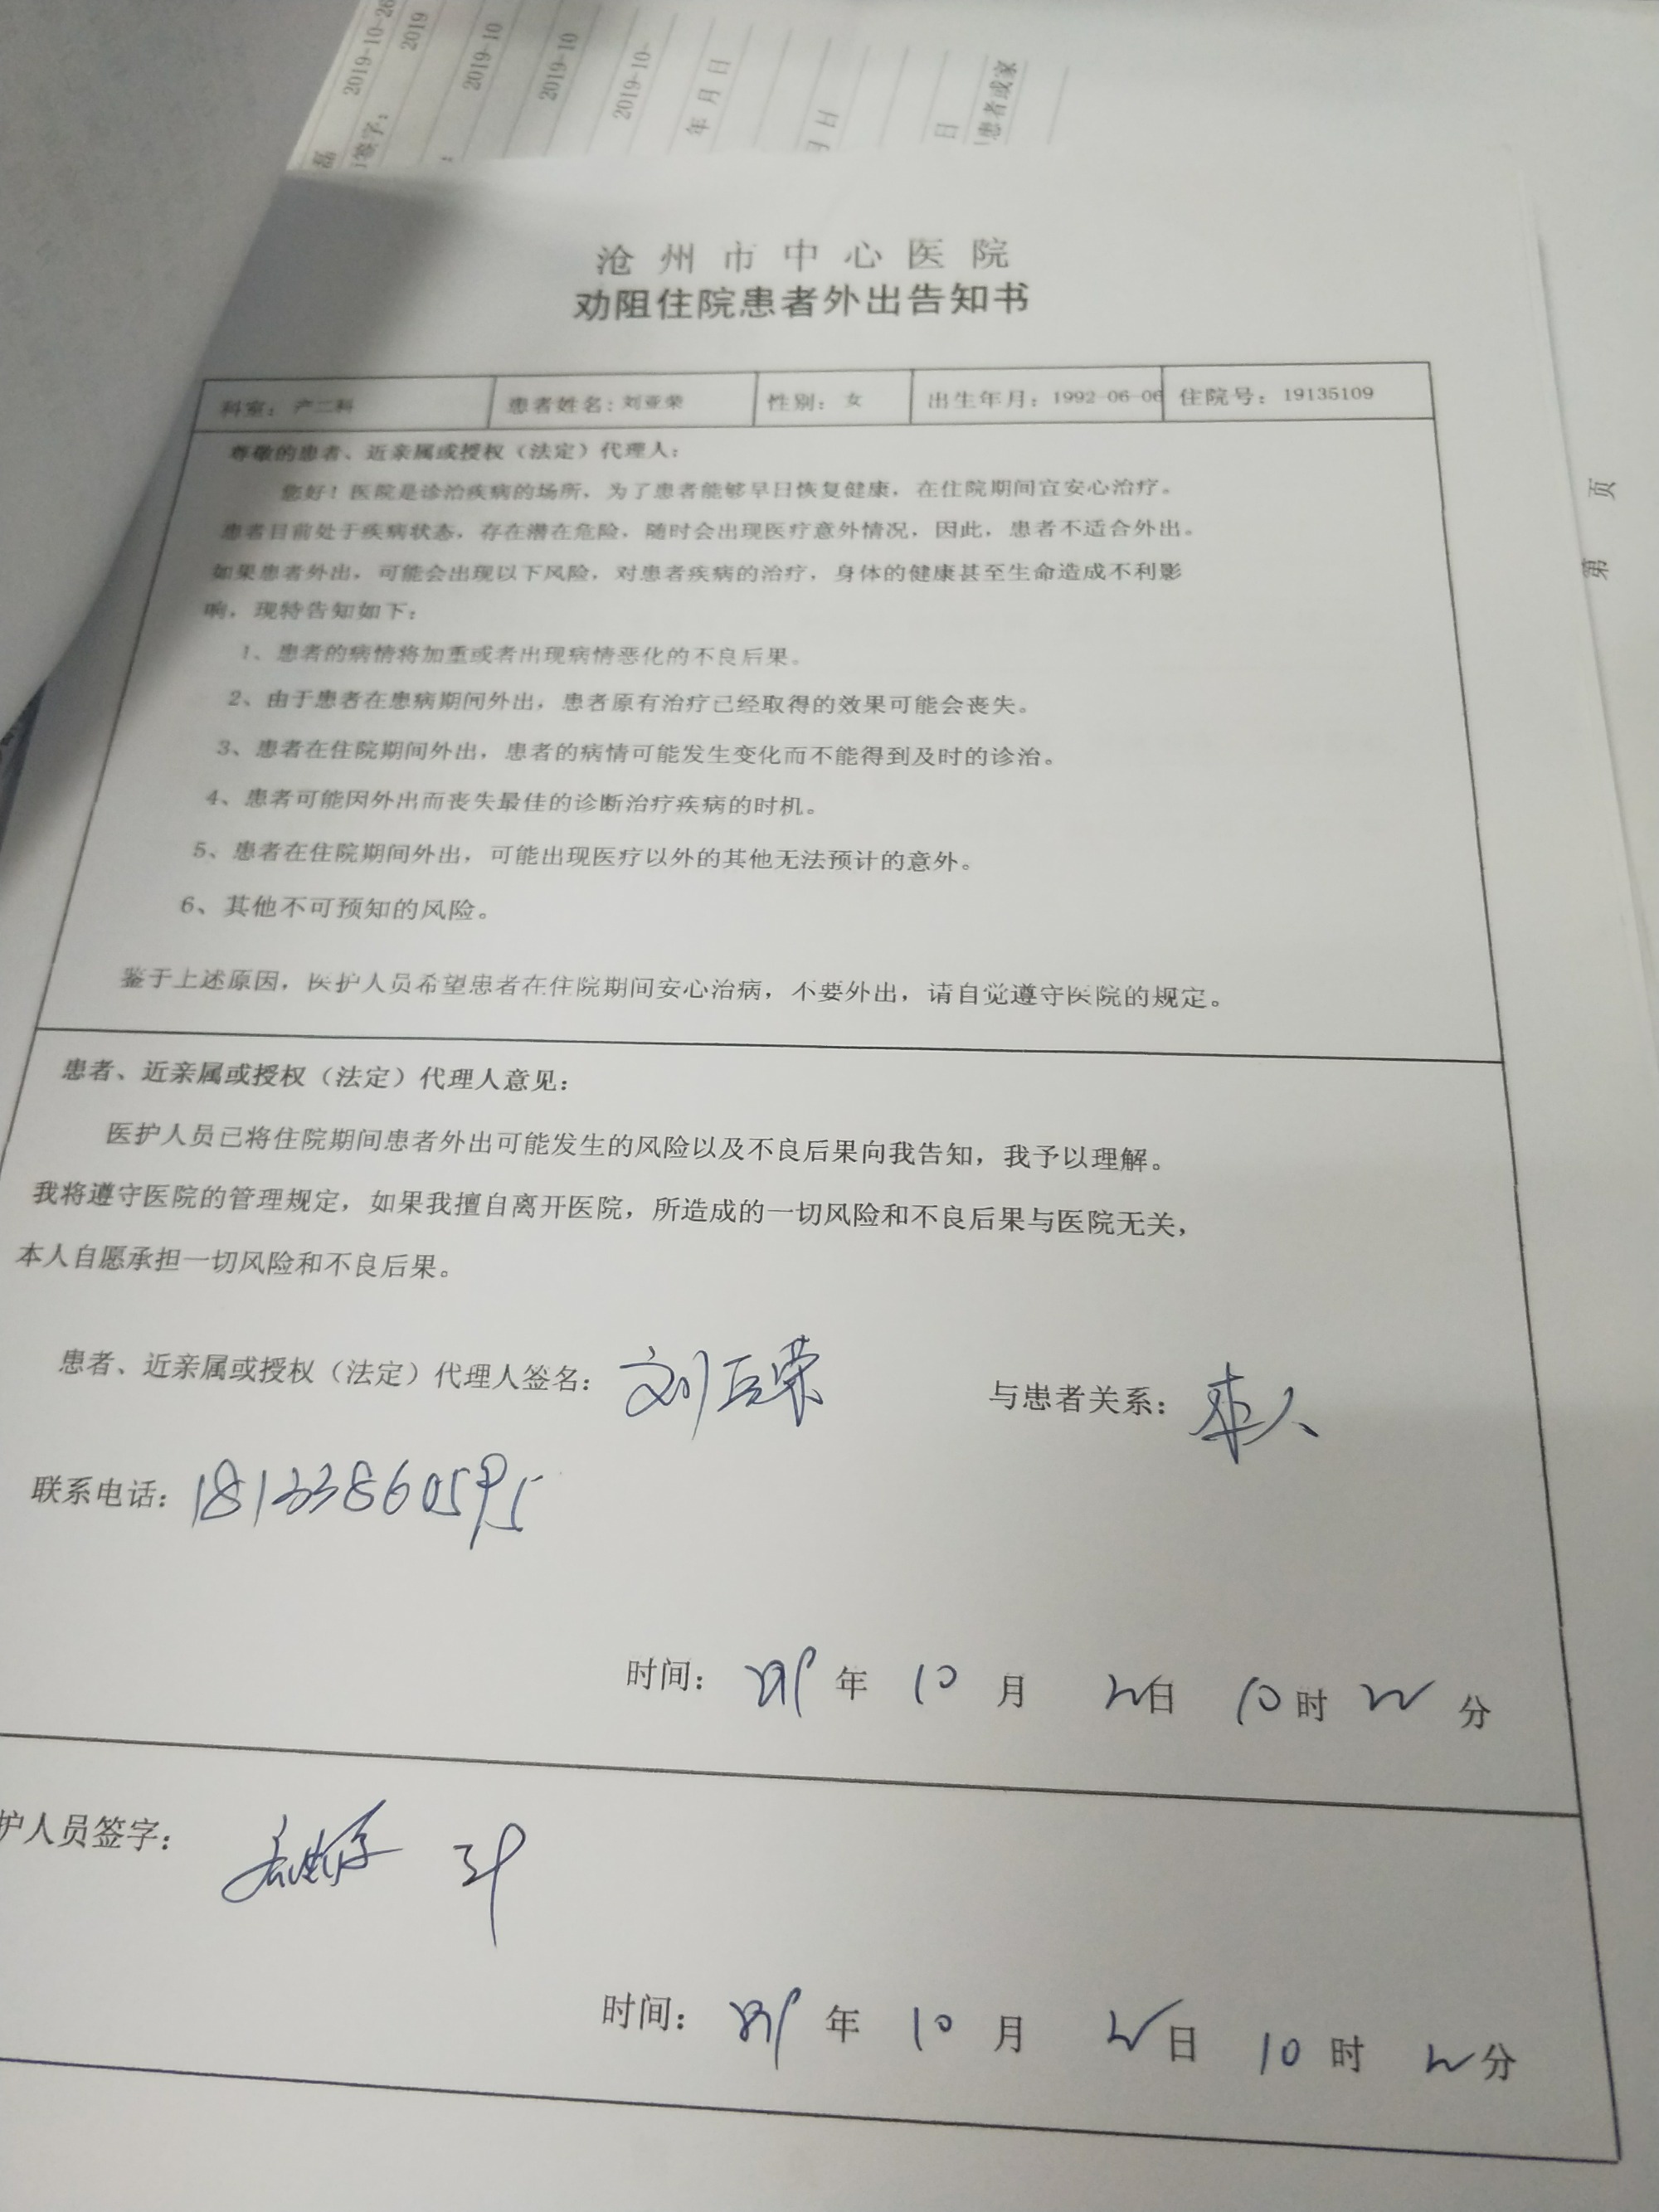 2019-10-26
2019
2019-10
2019-10
2019-10-
年 月 日
月 日
日
患者或家
磊
签字：
沧州市中心医院
劝阻住院患者外出告知书
科室：产二科 患者姓名：刘亚荣 性别：女 出生年月：1992-06-06 住院号：19135109
尊敬的患者、近亲属或授权（法定）代理人：
您好！医院是诊治疾病的场所，为了患者能够早日恢复健康，在住院期间宜安心治疗。
患者目前处于疾病状态，存在潜在危险，随时会出现医疗意外情况，因此，患者不适合外出。
如果患者外出，可能会出现以下风险，对患者疾病的治疗，身体的健康甚至生命造成不利影
响，现特告知如下：
1、患者的病情将加重或者出现病情恶化的不良后果。
2、由于患者在患病期间外出，患者原有治疗已经取得的效果可能会丧失。
3、患者在住院期间外出，患者的病情可能发生变化而不能得到及时的诊治。
4、患者可能因外出而丧失最佳的诊断治疗疾病的时机。
5、患者在住院期间外出，可能出现医疗以外的其他无法预计的意外。
6、其他不可预知的风险。
鉴于上述原因，医护人员希望患者在住院期间安心治病，不要外出，请自觉遵守医院的规定。
患者、近亲属或授权（法定）代理人意见：
医护人员已将住院期间患者外出可能发生的风险以及不良后果向我告知，我予以理解。
我将遵守医院的管理规定，如果我擅自离开医院，所造成的一切风险和不良后果与医院无关，
本人自愿承担一切风险和不良后果。
患者、近亲属或授权（法定）代理人签名：刘亚荣 与患者关系：本人
联系电话：18133860595
时间： 年 10 月 日 10 时 分
护人员签字：
时间： 年 10 月 日 10 时 分
第 页